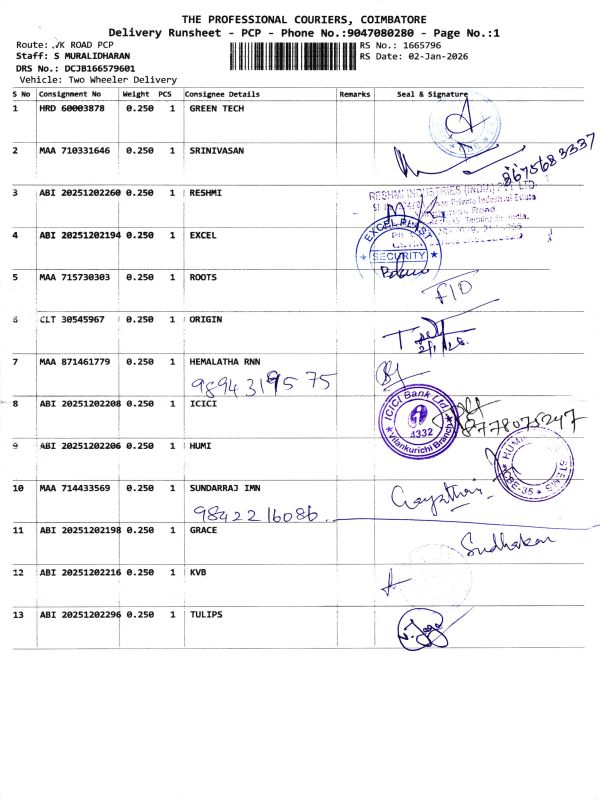 THE PROFESSIONAL COURIERS, COIMBATORE
Delivery Runsheet - PCP - Phone No.:9047080280 - Page No.:1
Route: VK ROAD PCP
RS No.: 1665796
Staff: S MURALIDHARAN
RS Date: 02-Jan-2026
DRS No.: DCJB166579601
Vehicle: Two Wheeler Delivery
S No Consignment No Weight PCS Consignee Details Remarks Seal & Signature
1 HRD 60003878 0.250 1 GREEN TECH
2 MAA 710331646 0.250 1 SRINIVASAN
8675683337
3 ABI 20251202260 0.250 1 RESHMI
RESHMI INDUSTRIES (INDIA) PVT LTD.
4 ABI 20251202194 0.250 1 EXCEL
EXCEL PLAST
SECURITY
5 MAA 715730303 0.250 1 ROOTS
6 CLT 30545967 0.250 1 ORIGIN
2/1/26
7 MAA 871461779 0.250 1 HEMALATHA RNN
9894319575
8 ABI 20251202208 0.250 1 ICICI
ICICI Bank Ltd.
4332
Vilankurichi Branch
8778075247
9 ABI 20251202206 0.250 1 HUMI
CBE-35
10 MAA 714433569 0.250 1 SUNDARRAJ IMN
Gayathri
9842216086
11 ABI 20251202198 0.250 1 GRACE
Sudhakan
12 ABI 20251202216 0.250 1 KVB
13 ABI 20251202296 0.250 1 TULIPS